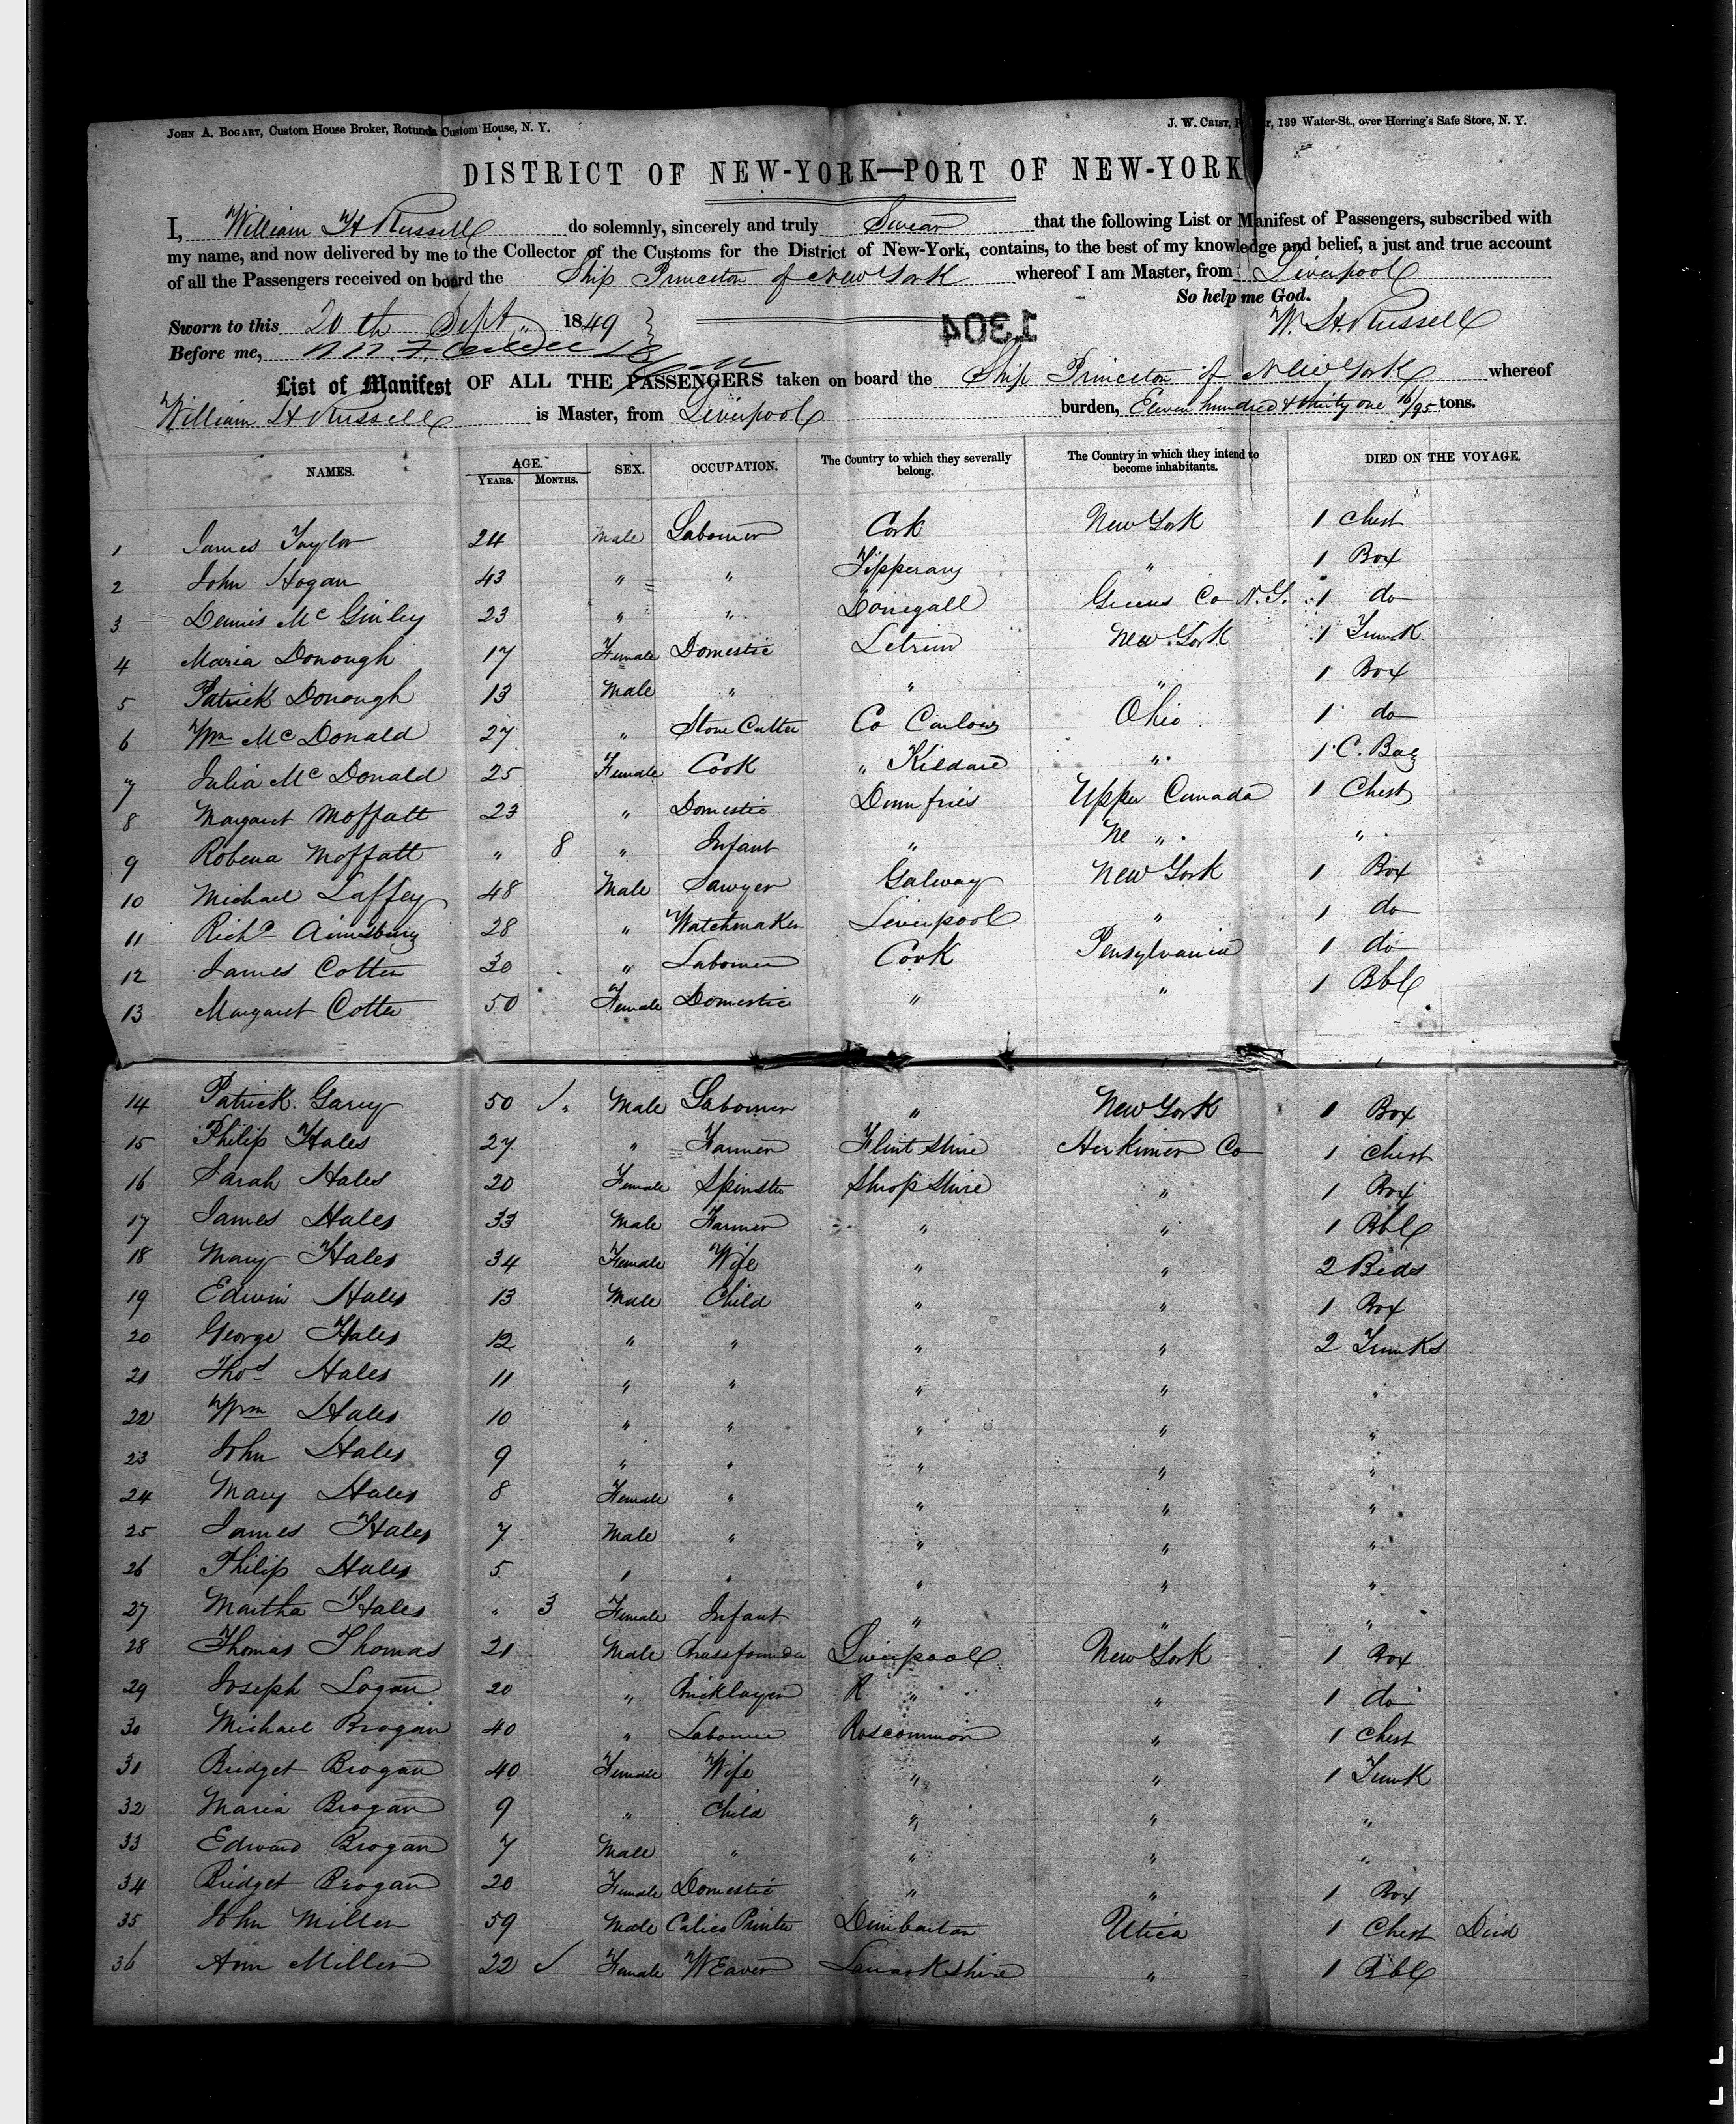 JOHN A. BOGART, Custom House Broker, Rotunda Custom House, N. Y.
J. W. CRIST, 139 Water-St., over Herring's Safe Store, N. Y.
DISTRICT OF NEW-YORK—PORT OF NEW-YORK
I, William H Russell do solemnly, sincerely and truly Swear that the following List or Manifest of Passengers, subscribed with
my name, and now delivered by me to the Collector of the Customs for the District of New-York, contains, to the best of my knowledge and belief, a just and true account
of all the Passengers received on board the Ship Princeton of New York whereof I am Master, from Liverpool
So help me God.
Sworn to this 20th Sept 1849
W. H. Russell
1304
Before me,
List of Manifest OF ALL THE PASSENGERS taken on board the Ship Princeton of New York whereof
William H Russell is Master, from Liverpool burden, Eleven hundred & thirty one 16/95 tons.
NAMES. AGE. SEX. OCCUPATION. The Country to which they severally belong. The Country in which they intend to become inhabitants. DIED ON THE VOYAGE.
YEARS. MONTHS.
1 James Taylor 24 Male Labourer Cork New York 1 Chest
2 John Hogan 43 " " Tipperary " 1 Box
3 Dennis Mc Ginley 23 " " Donegall Greens Co N.Y. 1 do
4 Maria Donough 17 Female Domestic Letrim New York 1 Trunk
5 Patrick Donough 13 Male " " " 1 Box
6 Wm Mc Donald 27 " Stone Cutter Co Carlow Ohio 1 do
7 Julia Mc Donald 25 Female Cook " Kildare " 1 C. Bag
8 Margaret Moffatt 23 " Domestic Dumfries Upper Canada 1 Chest
9 Robena Moffatt " 8 " Infant " Ne " "
10 Michael Laffey 48 Male Sawyer Galway New York 1 Box
11 Richd Ainsbury 28 " Watchmaker Liverpool " 1 do
12 James Cotter 30 " Labourer Cork Pensylvania 1 do
13 Margaret Cotter 50 Female Domestic " " 1 Bbl
14 Patrick Garey 50 Male Labourer " New York 1 Box
15 Philip Hales 27 " Farmer Flint Shire Herkimer Co 1 Chest
16 Sarah Hales 20 Female Spinster Shrop Shire " 1 Box
17 James Hales 33 Male Farmer " " 1 Bbl
18 Mary Hales 34 Female Wife " " 2 Beds
19 Edwin Hales 13 Male Child " " 1 Box
20 George Hales 12 " " " " 2 Trunks
21 Thos Hales 11 " " " " "
22 Wm Hales 10 " " " " "
23 John Hales 9 " " " " "
24 Mary Hales 8 Female " " " "
25 James Hales 7 Male " " " "
26 Philip Hales 5 " " " " "
27 Martha Hales " 3 Female Infant " " "
28 Thomas Thomas 21 Male Brassfounder Liverpool New York 1 Box
29 Joseph Logan 20 " Bricklayer R " " 1 do
30 Michael Brogan 40 " Labourer Roscommon " 1 Chest
31 Bridget Brogan 40 Female Wife " " 1 Trunk
32 Maria Brogan 9 " Child " " "
33 Edward Brogan 7 Male " " " "
34 Bridget Brogan 20 Female Domestic " " 1 Box
35 John Miller 59 Male Calico Printer Dumbarton Utica 1 Chest Died
36 Ann Miller 22 Female Weaver Lanark Shire " 1 Bbl